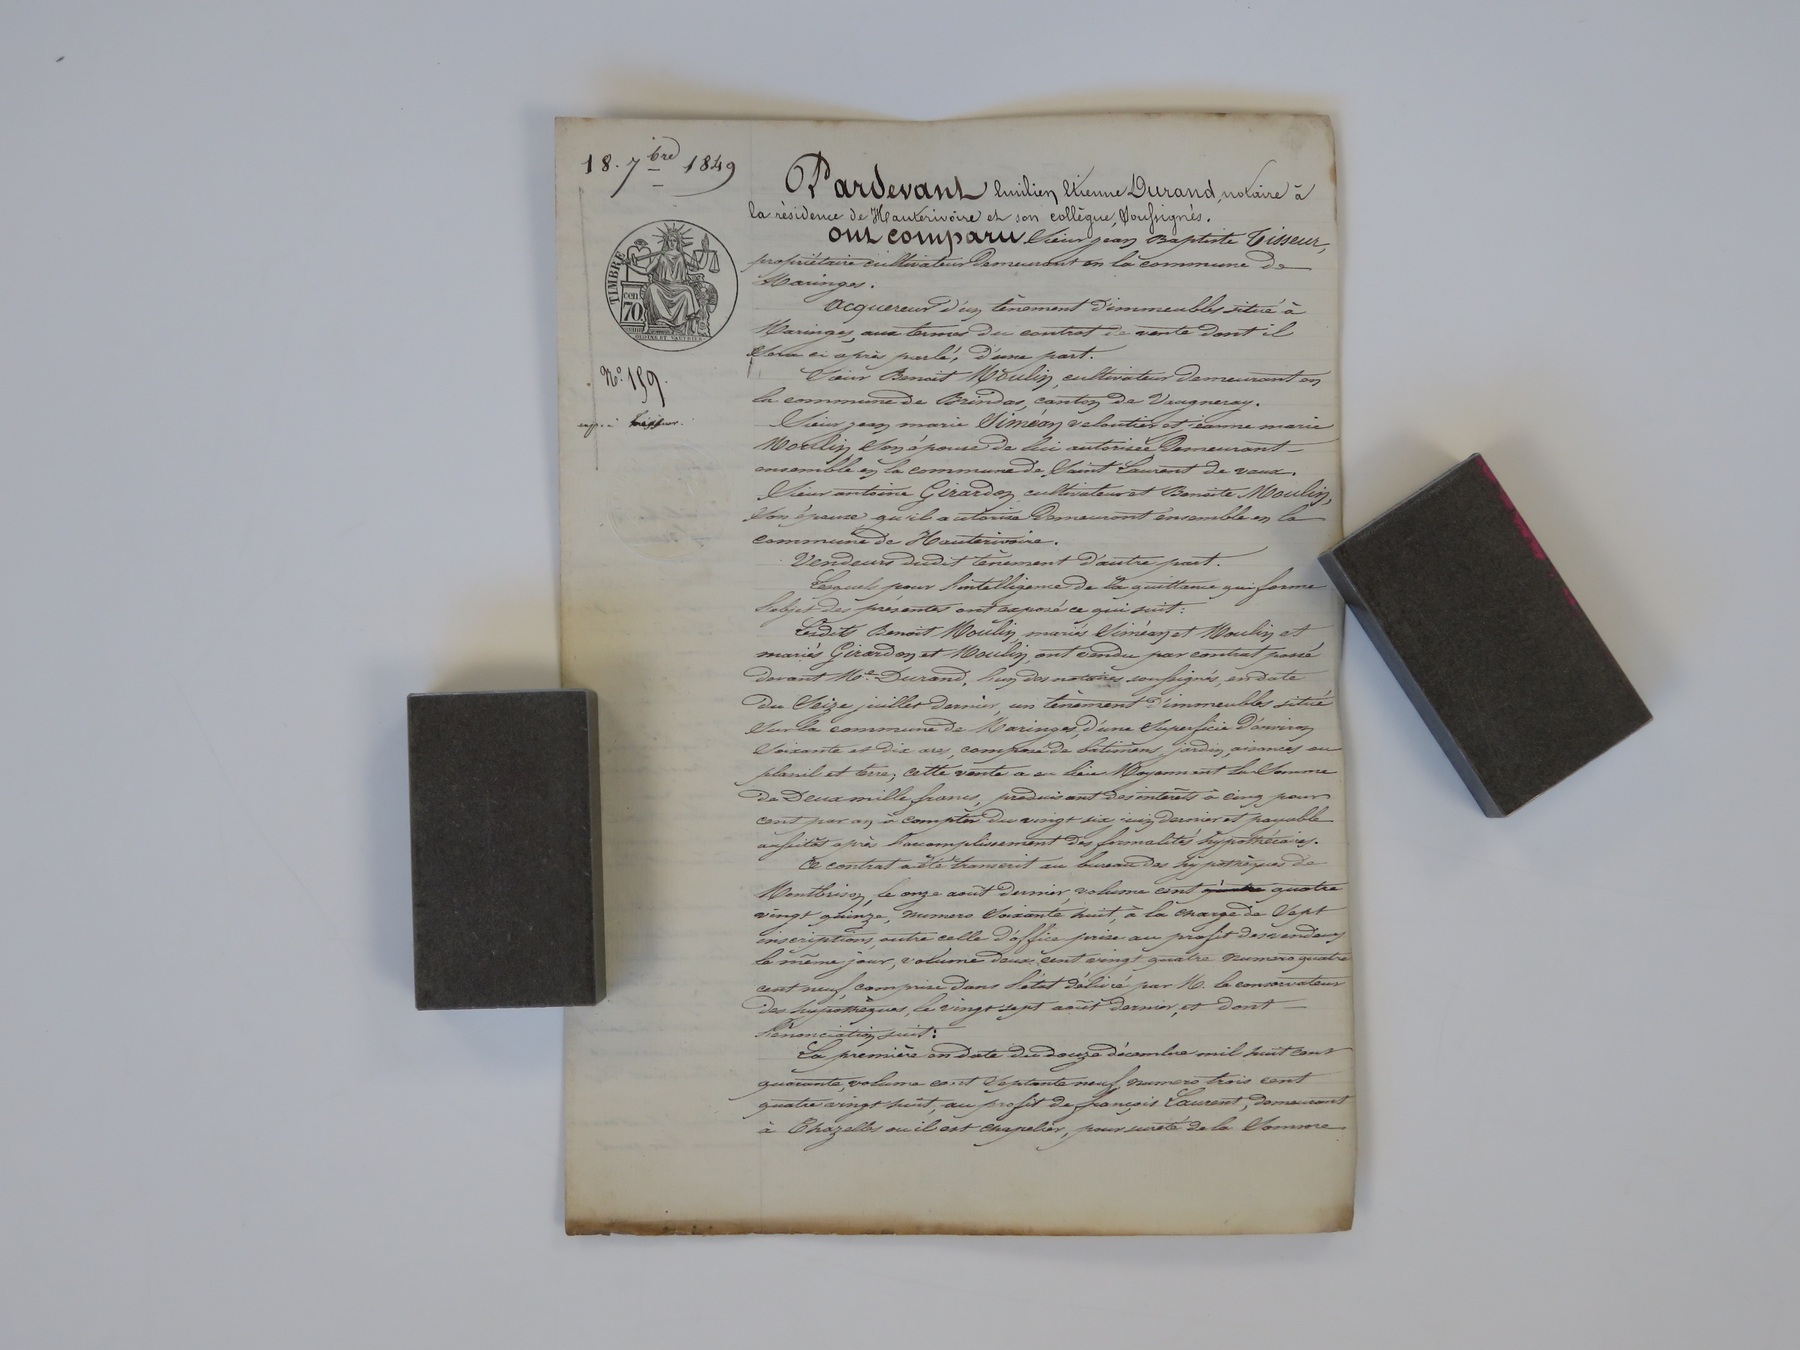 18. 7bre 1849
TIMBRE
cen
70
OUDINE ET VAUTHIER
N° 159.
Pardevant Emilien Etienne Durand, notaire à
la résidence de Hauterivoire et son collègue, soussignés.
ont comparu Sieur jean Baptiste Tisseur,
propriétaire cultivateur demeurant en la commune de
Maringes.
Acquereur d'un tènement d'immeubles situé à
Maringes, aux termes du contrat de vente dont il
sera ci après parlé, d'une part.
Sieur Benoit Moulin, cultivateur demeurant en
la commune de Brindas, canton de Vaugneray.
Sieur jean marie Siméon veloutier et jeanne marie
Moulin son épouse de lui autorisée demeurant
ensemble en la commune de Saint Laurent de vaux.
Sieur antoine Girardon cultivateur et Benoite Moulin,
son épouse qu'il autorise demeurant ensemble en la
commune de Hauterivoire.
Vendeurs dudit tènement d'autre part.
Lesquels pour l'intelligence de la quittance qui forme
l'objet des présentes ont exposé ce qui suit:
Lesdits Benoit Moulin, mariés Siméon et Moulin et
mariés Girardon et Moulin, ont vendu par contrat passé
devant Me Durand, l'un des notaires soussignés, en date
du Seize juillet dernier, un tènement d'immeubles situé
sur la commune de Maringes, d'une superficie d'environ
soixante et dix ares, composé de bâtimens, jardin, aisances en
planil et terre, cette vente a eu lieu Moyennant la Somme
de Deux mille francs, produisant des intérêts à cinq pour
cent par an à compter du vingt six juin dernier et payable
aussitôt après l'accomplissement des formalités hypothécaires.
Ce contrat a été transcrit au bureau des hypothèques de
Montbrison, le onze août dernier, volume cent quatre
vingt quinze, numero soixante huit, à la charge de Sept
inscriptions, outre celle d'office prise au profit des vendeurs
le même jour, volume deux cent vingt quatre numero quatre
cent neuf, comprise dans l'état délivré par M. le conservateur
des hypothèques, le vingt sept août dernier, et dont
l'énonciation suit:
La première en date du douze décembre mil huit cent
quarante, volume cent septante neuf numero trois cent
quatre vingt huit, au profit de françois Laurent, demeurant
à Chazelles ou il est chapelier, pour sureté de la Somme